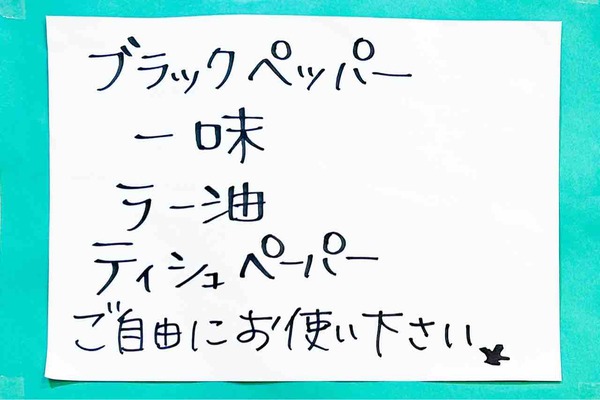 ブラックペッパー
一味
ラー油
ティシュペーパー
ご自由にお使い下さい